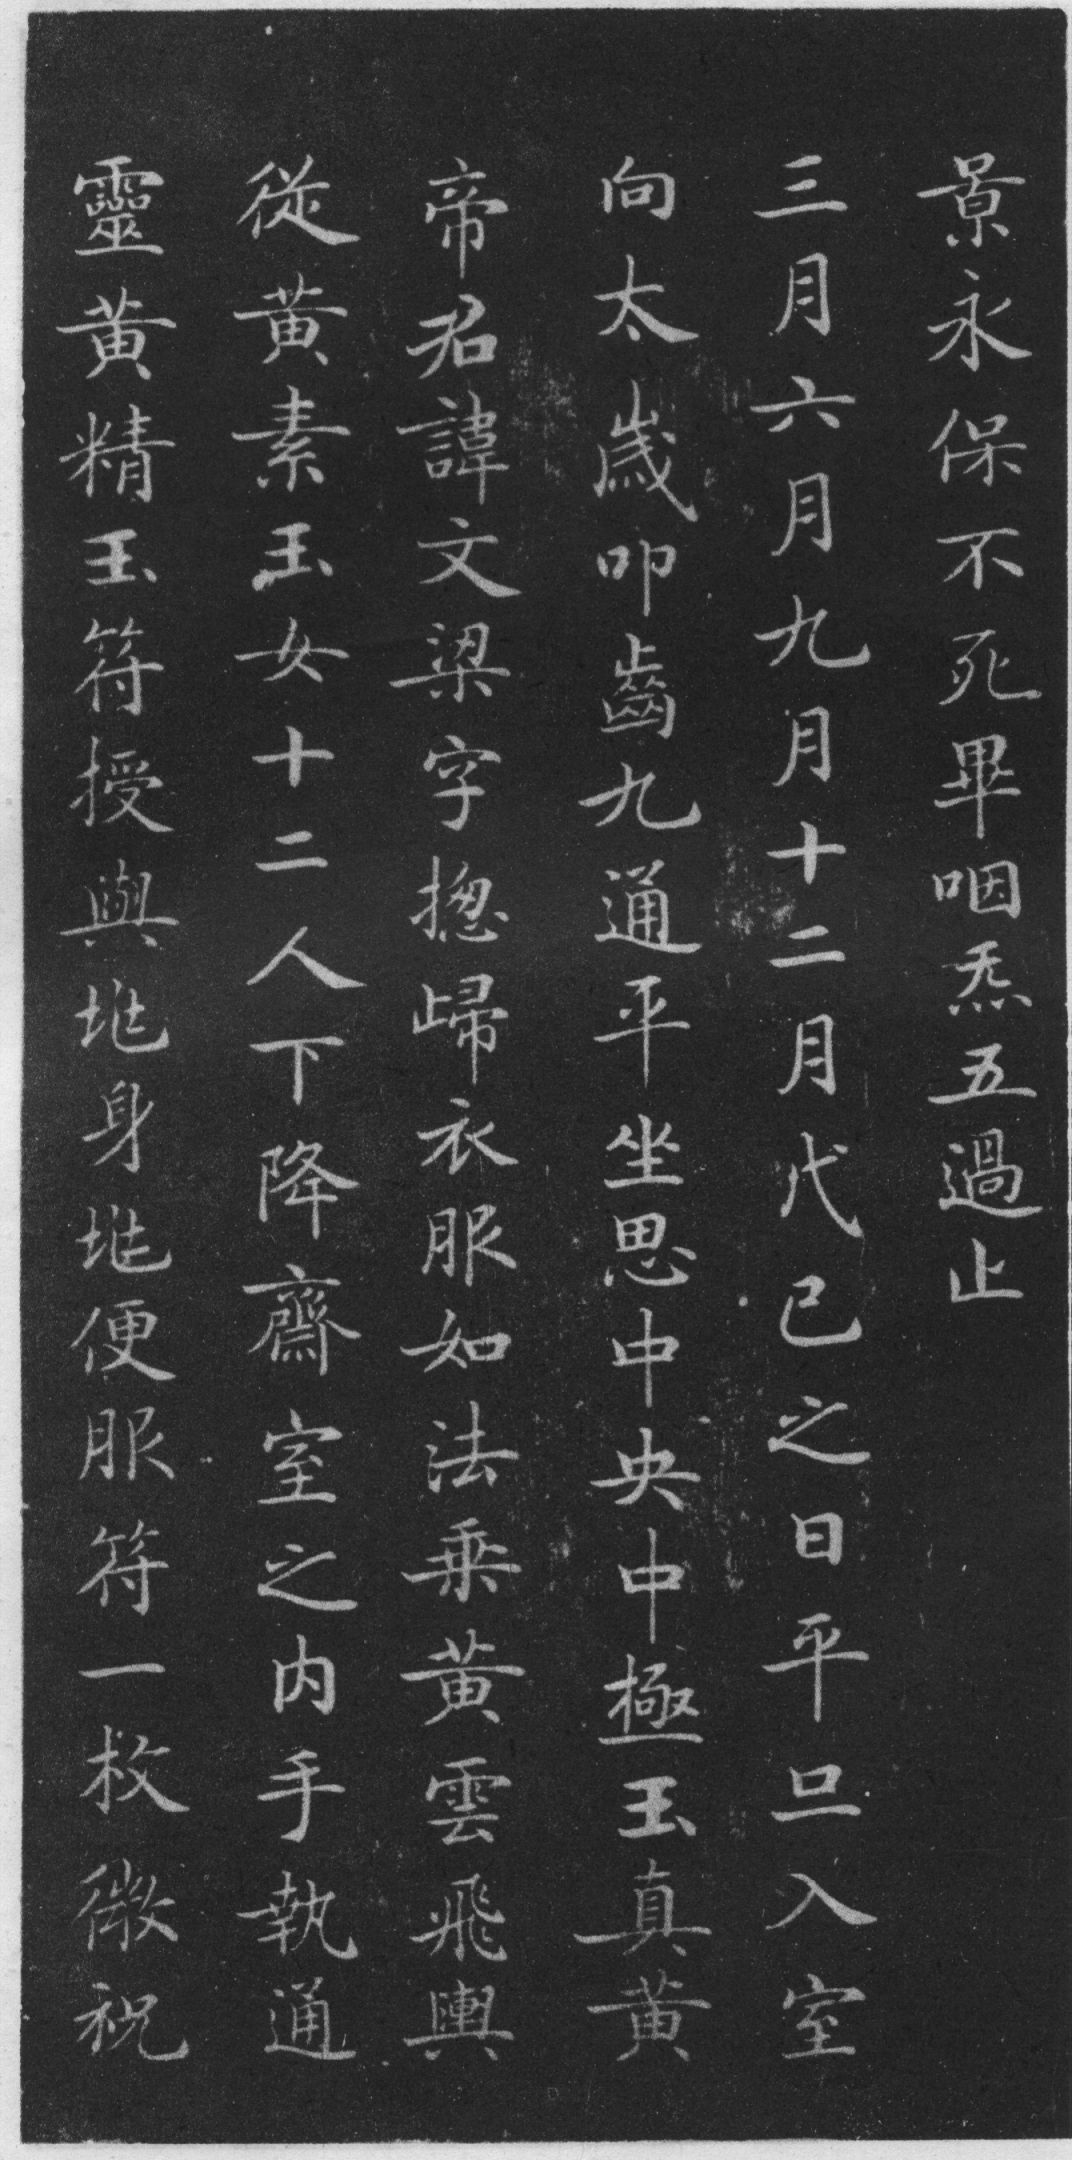 景永保不死畢咽炁五過止
三月六月九月十二月戊己之日平旦入室
向太歲叩齒九通平坐思中央中極玉真黃
帝君諱文梁字揔歸衣服如法乘黃雲飛輿
從黃素玉女十二人下降齋室之內手執通
靈黃精玉符授與地身地便服符一枚微祝